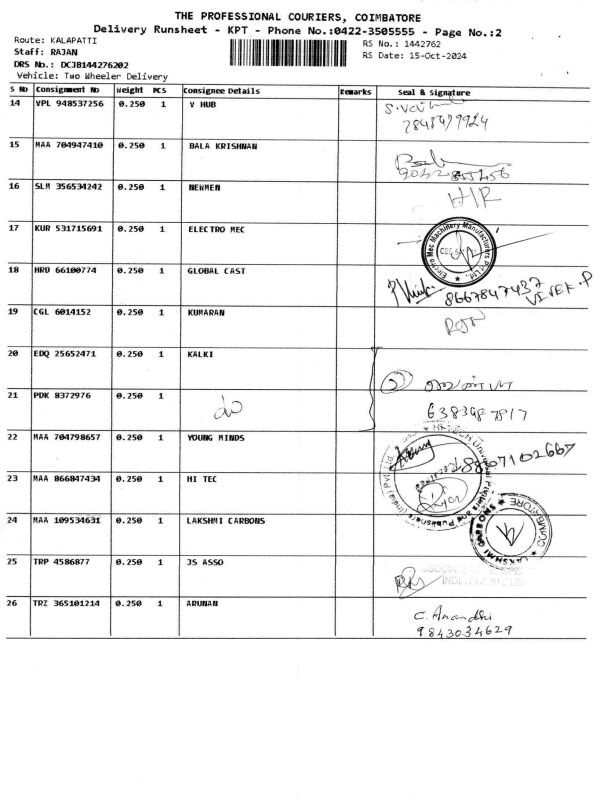 THE PROFESSIONAL COURIERS, COIMBATORE
Delivery Runsheet - KPT - Phone No.:0422-3505555 - Page No.:2
Route: KALAPATTI
RS No.: 1442762
Staff: RAJAN
RS Date: 15-Oct-2024
DRS No.: DCJB144276202
Vehicle: Two Wheeler Delivery
S No Consignment No Weight PCS Consignee Details Remarks Seal & Signature
14 VPL 948537256 0.250 1 V HUB
15 MAA 704947410 0.250 1 BALA KRISHNAN
16 SLM 356534242 0.250 1 NEWMEN
17 KUR 531715691 0.250 1 ELECTRO MEC
Electro Mec Machinery Manufacturers P Ltd.
18 HRD 66100774 0.250 1 GLOBAL CAST
8667847437
VIVEK.P
19 CGL 6014152 0.250 1 KUMARAN
20 EDQ 25652471 0.250 1 KALKI
21 PDK 8372976 0.250 1
6383987817
22 MAA 704798657 0.250 1 YOUNG MINDS
8807102667
23 MAA 866847434 0.250 1 HI TEC
24 MAA 109534631 0.250 1 LAKSHMI CARBONS
LAKSHMI CARBONS COIMBATORE
25 TRP 4586877 0.250 1 JS ASSO
26 TRZ 365101214 0.250 1 ARUNAN
C. Anandhi
9843034629